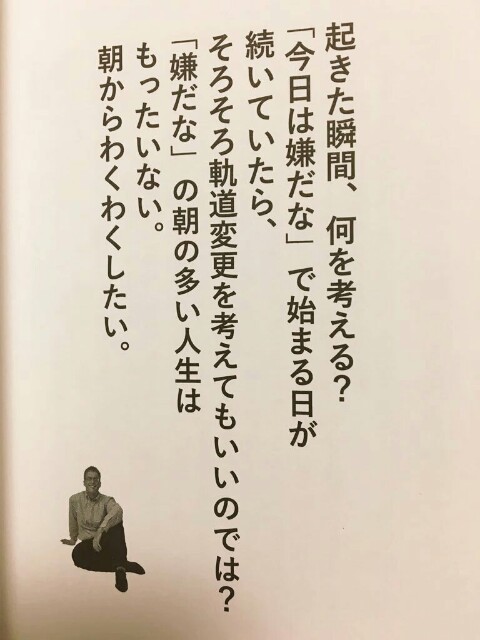 起きた瞬間、何を考える？
「今日は嫌だな」で始まる日が
続いていたら、
そろそろ軌道変更を考えてもいいのでは？
「嫌だな」の朝の多い人生は
もったいない。
朝からわくわくしたい。